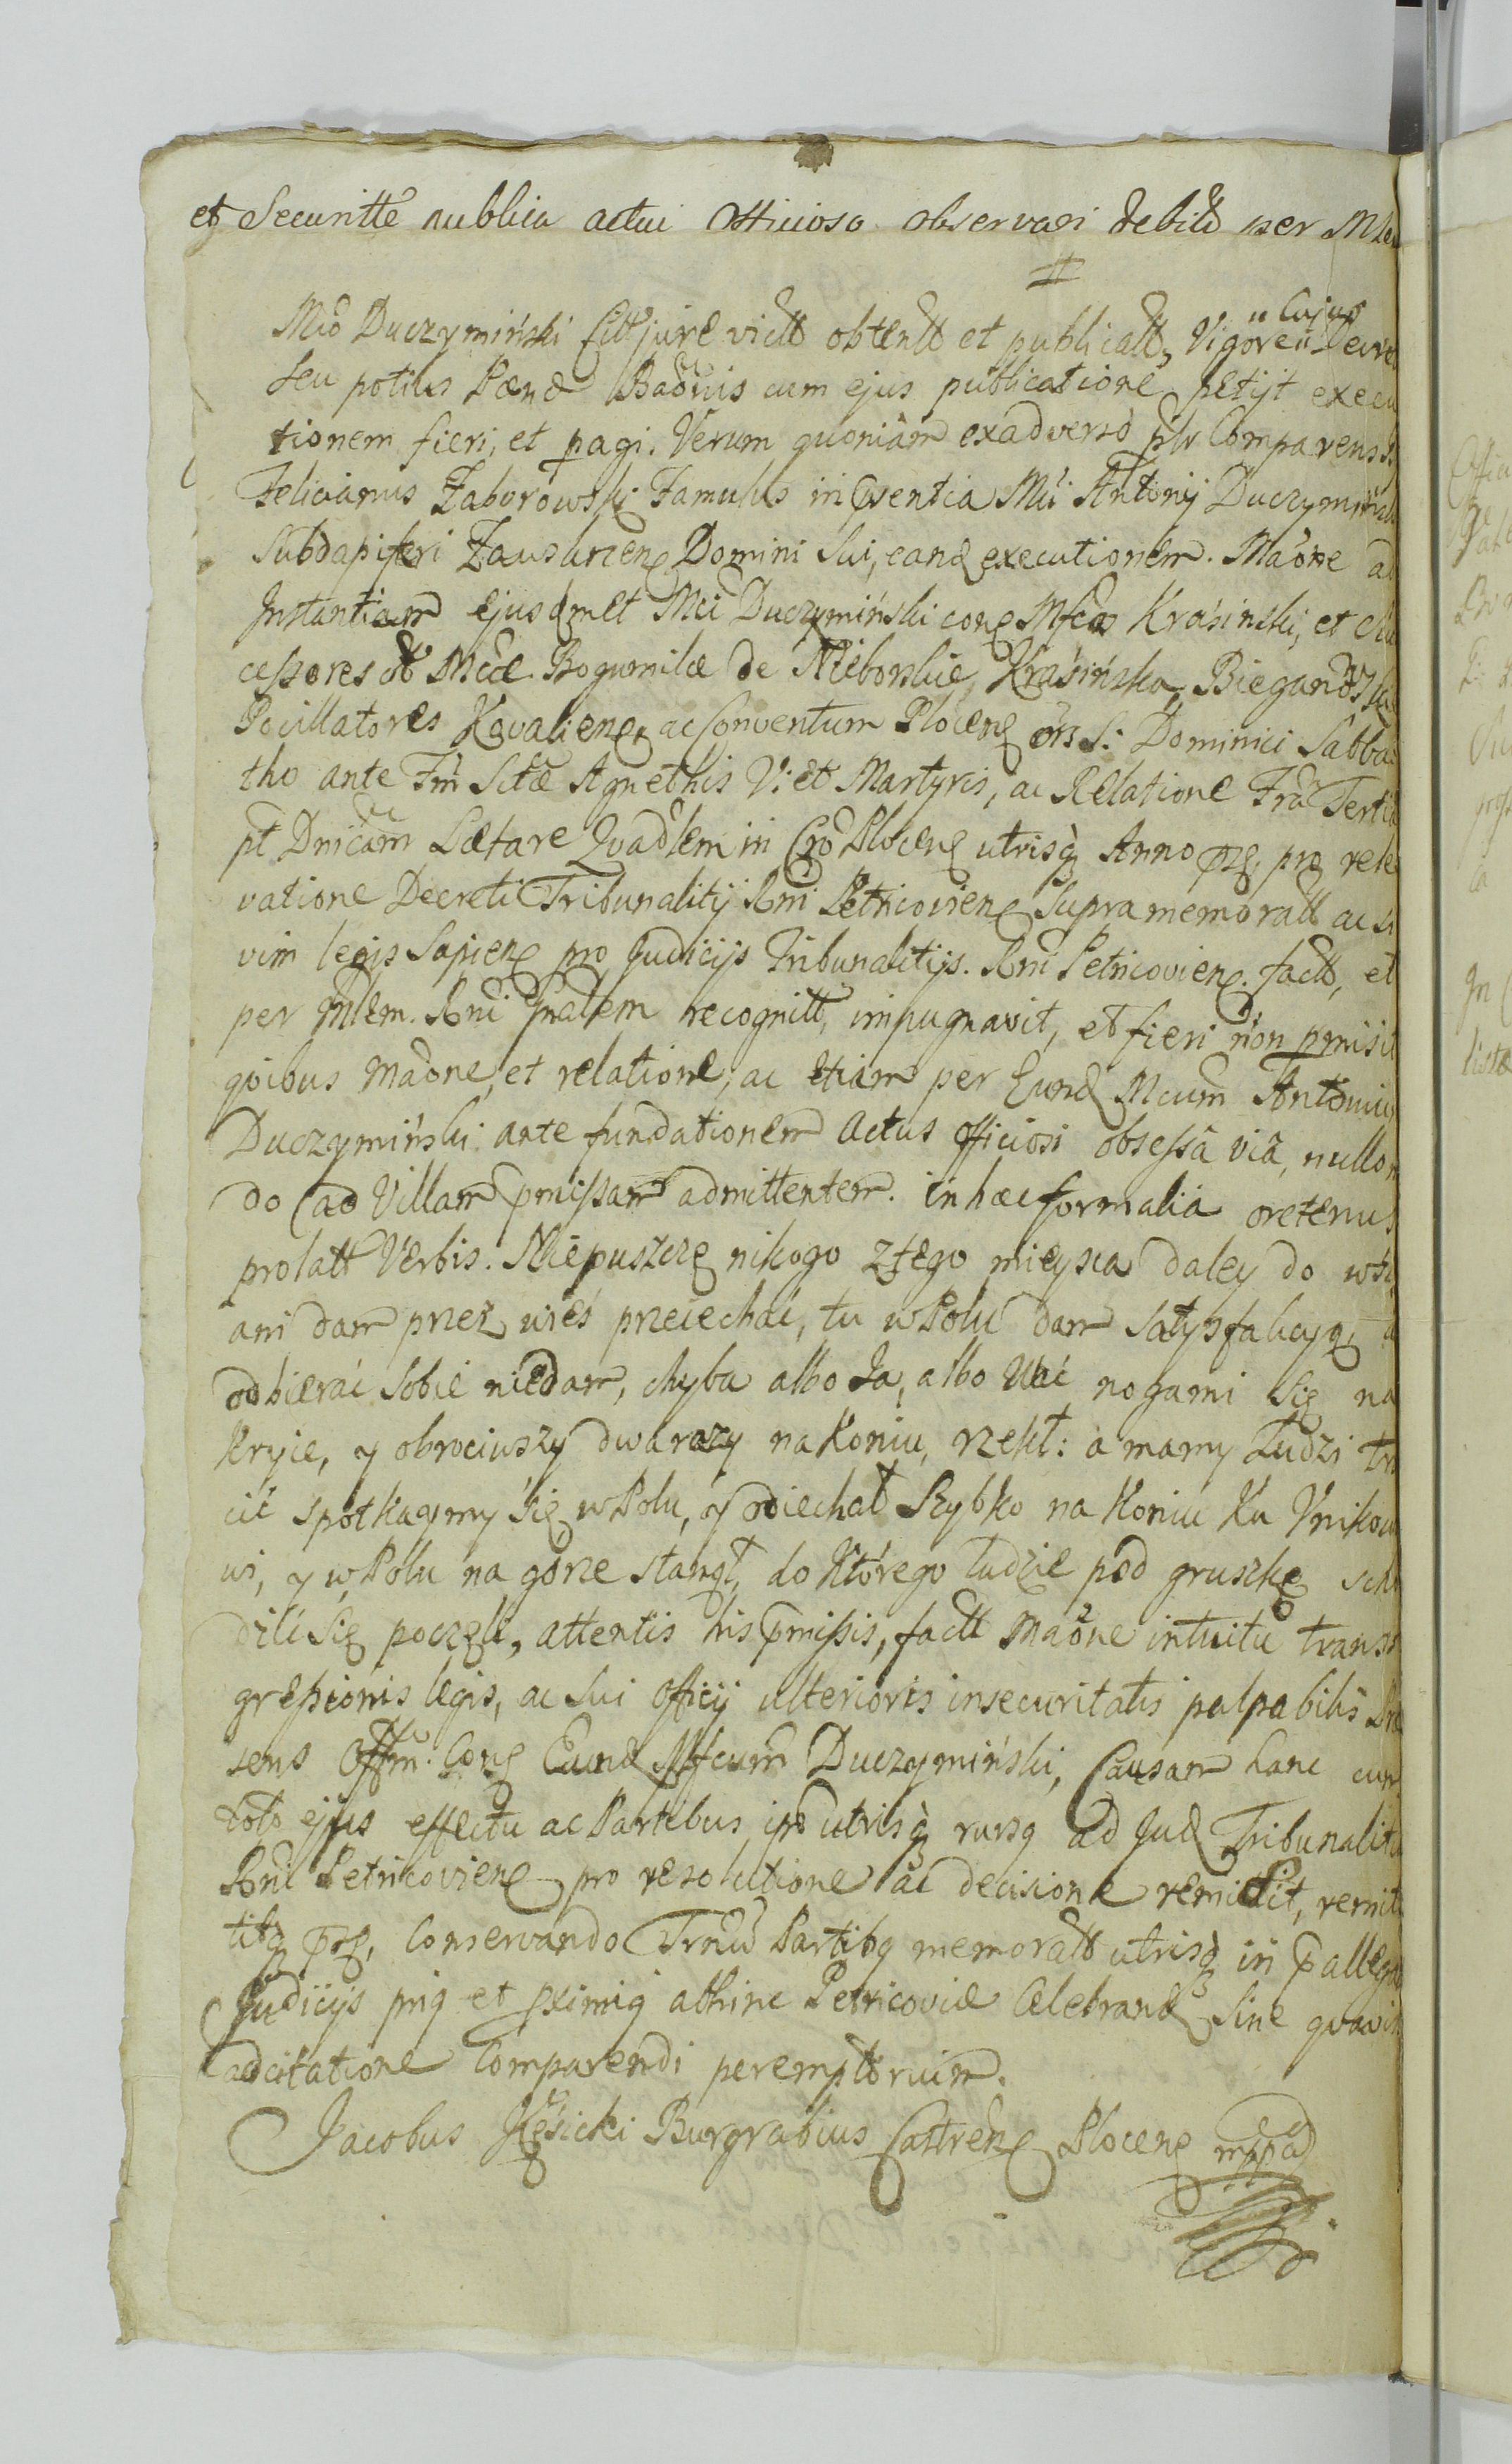 et Securitte publica actui Officioso observari debitâ per M
Mcõ Duczyminski Citt jure victt obtentt et publicatt, Vigore cujus Decre
Seu potius Pænæ Bannis cum ejus publicatione petijt execu
tionem fieri, et pagi. Verum quoniam exadverso plr Comparens
Felicianus Zaborowski Famulus in pñtia Mci Antonij Duczyminski
Subdapiferi Zauskrzeń Domini Sui, eand executionem. Maõne ad
Instantiam ejusdmet Mci Duczyminski con Mfcos Krasinski, et
cessores Mcæ Bogumilæ de Nieborskie Krasinska, Bieganowski
Pocillatores Kovalien, ac Conventum Plocen S: Dominici Sabba
tho ante Fm Sctæ Agnethis V: et Martyris, ac Relatione Fra Tertia
pt Dnicam Lætare Quadlem in Cro Plocen utrisq Anno prę rele
vatione Decreti Tribunalitij Rni Petricovien Supramemoratt ac
vim legis Sapien pro Judicijs Tribunalitijs Rni Petricovien factt, et
per Mlem Rni Gnalem recognitt, impugnavit, et fieri non pmisit
qõibus maõne, et relatione, ac etiam per Eund Mcum Antonium
Duczyminski ante fundationem Actus Officiosi obsessâ viâ, nullo
do ad Villam pmissam admittentem. in hæc formalia oretenus
prolatt Verbis. Niepuszczę nikogo ztego mieysca daley do wsi
ani dam przez wieś przeiechać, tu w Polu dam Satysfakcyą, a
odbierać Sobie niedam, chyba albo Ja, albo Wać nogami Się na
kryie, y obrociwszy dwa razy na Koniu, rzekł: a mamy Ludzi
cić spotkaymy się w Polu, y odiechał Szybko na Koniu Ku Unikow
wi, y w Polu na gorze stanął, do Ktorego ludzie pod gruszkę scho
dzić Się poczęli, attentis his pmissis, factt maõne intuitu trans
gressionis legis, ac Sui Officij ulterioris insecuritatis palpabilis Præ
sens Offm. Con Eund Mfcum Duczyminski, Causam hanc cum
toto ejus effectu ac Partibus ips utrisq rursq ad Jud Tribunalitia
Rni Petricovien pro resolutione ac decisione remisit, remit
titq prę, Conservando Trnũ Partibq memoratt utrisq in p allegat
Judicijs priq et pximiq abhinc Petricoviæ Celebrand Sine quavis
adcitatione Comparendi peremptorium.
Jacobus Kęsicki Burgrabius Castren Plocen mppa